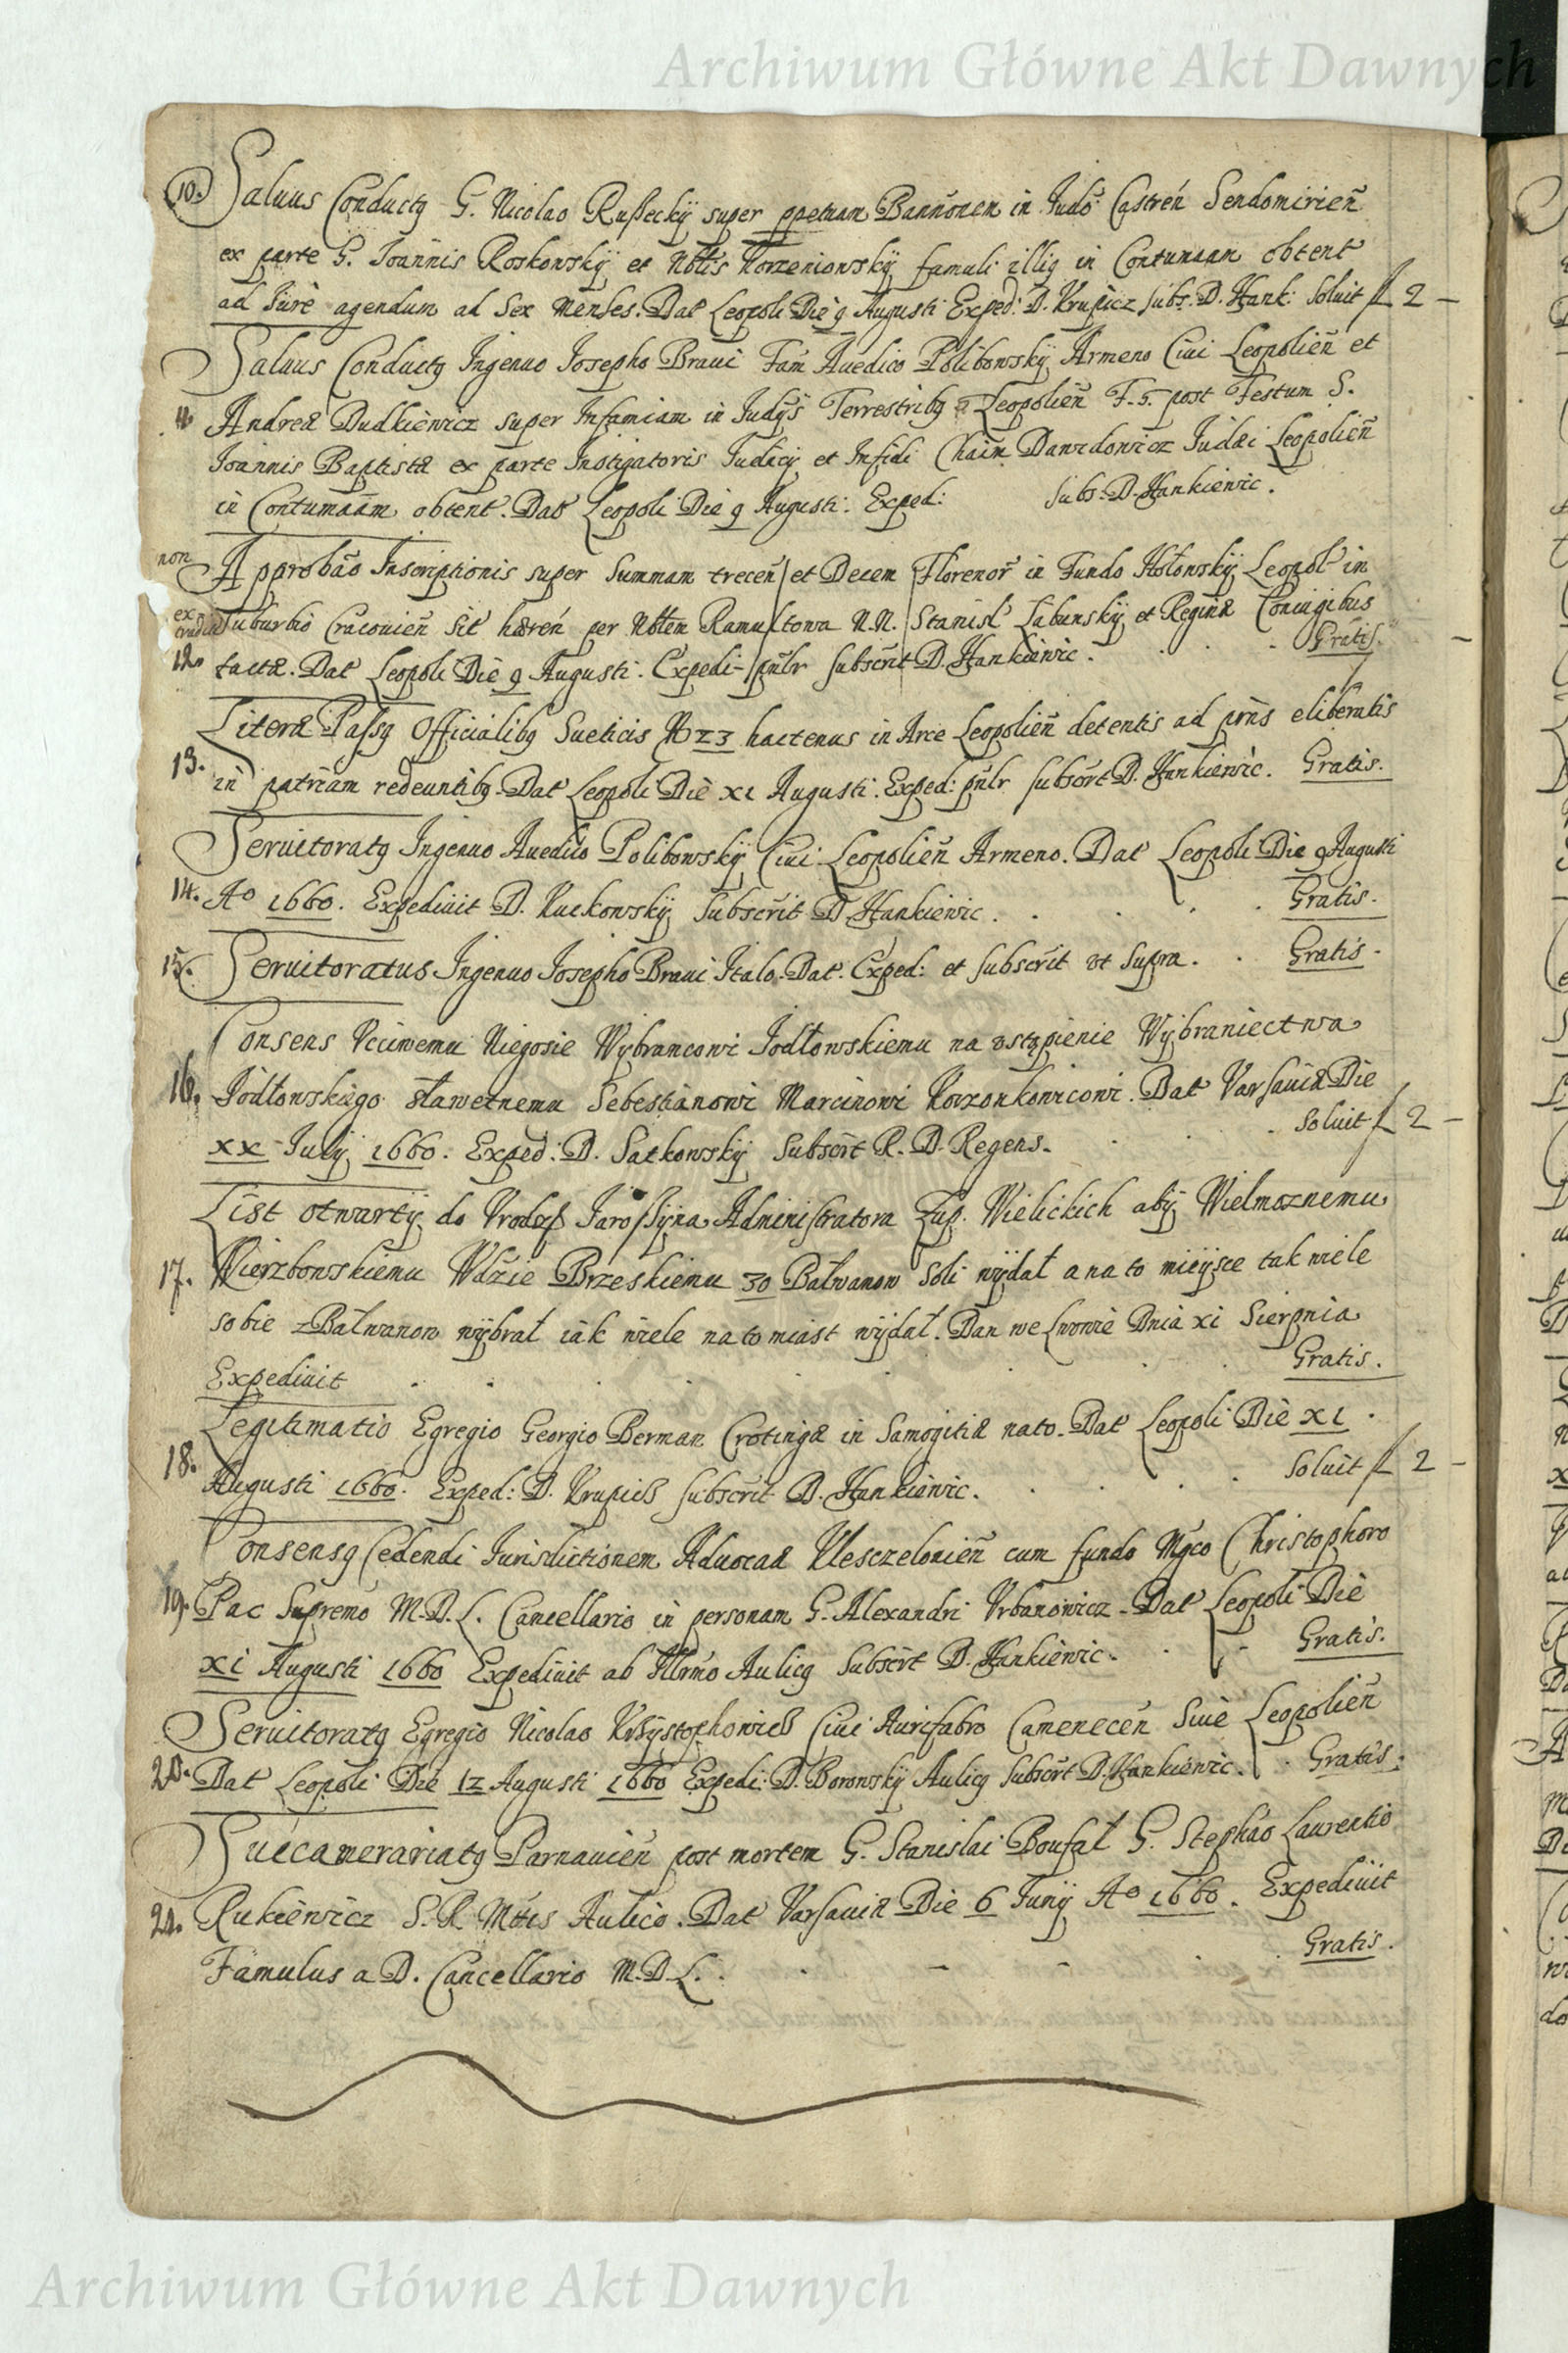 Archiwum Główne Akt Dawnych
10. Salvus Conductq G. Nicolao Rußeckÿ super ppetuam Bannõnem in Judõ Castreń Sendomirień
ex parte G. Joannis Roskowskÿ et Nbĺis Korzeniowskÿ famuli illiq in Contumaam obtent
ad Jure agendum ad Sex Menses. Dat Leopoli Die 9 Augusti Exped: D. Krupicz Subs: D. Hank: Soluit f 2 –
Saluus Conductq Ingenuo Josepho Braui Fam Auedico Polibowskÿ Armeno Ciui Leopolień et
11. Andreæ Dudkiewicz super Infamiam in Judÿs Terrestribq Leopolień F. 5. post Festum S.
Joannis Baptistæ ex parte Instigatoris Judicÿ et Infidi Chaim Dawidowicz Judæi Leopolień
in Contumaãm obtent. Dat Leopoli Die 9 Augusti. Exped: Subs. D. Hankiewic.
non Approbão Inscriptionis super Summam treceń et Decem Florenor in Fundo Hołowskÿ Leopol in
ex Suburbio Cracouień Sit hæreń per Nbĺem Ramułtowa N.N. Stanisł Łabunskÿ et Reginæ Coniugibus
12. factæ. Dat Leopoli Die 9 Augusti. Expedi– pńlr subscrit D. Hankiewic. Gratis.
Literæ Passq Officialibq Sueticis No 23 hactenus in Arce Leopolień detentis ad prńs eliberatis
13. in patriam redeuntibq. Dat Leopoli Die XI Augusti. Exped: pńlr subscrt D. Hankiewic. Gratis.
Seruitoratq Ingenuo Auedico Polibowskÿ Ciui Leopolień Armeno. Dat Leopoli Die 9 Augusti
14. Ao 1660. Expediuit D. Kuckowskÿ Subscrit D. Hankiewic. Gratis.
15. Seruitoratus Ingenuo Josepho Braui Italo. Dat. Exped: et subscrit vt Supra. Gratis.
Consens Vcciwemu Niegosie Wÿbrancowi Jodłowskiemu na vstąpienie Wÿbraniectwa
16. Jodłowskiego sławetnemu Sebestianowi Marcinowi Korzonkowicowi. Dat Varsauiæ Die
XX Julÿ 1660. Exped: D. Satkowskÿ Subscrt R. D. Regens. Soluit f 2 –
List otwartÿ do Vrodzß Jarossÿna Administratora Żup. Wielickich abÿ Wielmoznemu
17. Wierzbowskiemu Wdzie Brzeskiemu 30 Bałwanow Soli wÿdał a na to mieÿsce tak wiele
sobie z Bałwanow wÿbrał iak wiele na to miast wÿdał. Dan we Lwowie Dnia XI Sierpnia
Expediuit Gratis.
Legitimatio Egregio Georgio Berman Crotingæ in Samogitiæ nato. Dat Leopoli Die XI
18. Augusti 1660. Exped: D. Krupicß subscrit D. Hankiewic. Soluit f 2 –
Consensq Cedendi Jurisdictionem Aduocaæ Klesczelouień cum fundo Mgco Christophoro
19. Pac Supremo M.D.L. Cancellario in personam G. Alexandri Vrbanowicz. Dat Leopoli Die
XI Augusti 1660 Expediuit ab Illrmo Aulicq Subscrt D. Hankiewic. Gratis.
Seruitoratq Egregio Nicolao Krßÿstophowicß Ciui Aurifabro Cameneceń Siue Leopolień
20. Dat Leopoli Die 12 Augusti 1660 Expedi: D. Borowskÿ Aulicq Subscrt D. Hankiewic. Gratis.
Succamerariatq Parnauień post mortem G. Stanislai Boufał G. Stephão Laurectio
21. Rukiewicz S. R. Mtis Aulico. Dat Varsauiæ Die 6 Junÿ Ao 1660. Expediuit
Famulus a D. Cancellario M.D.L. Gratis.
Archiwum Główne Akt Dawnych